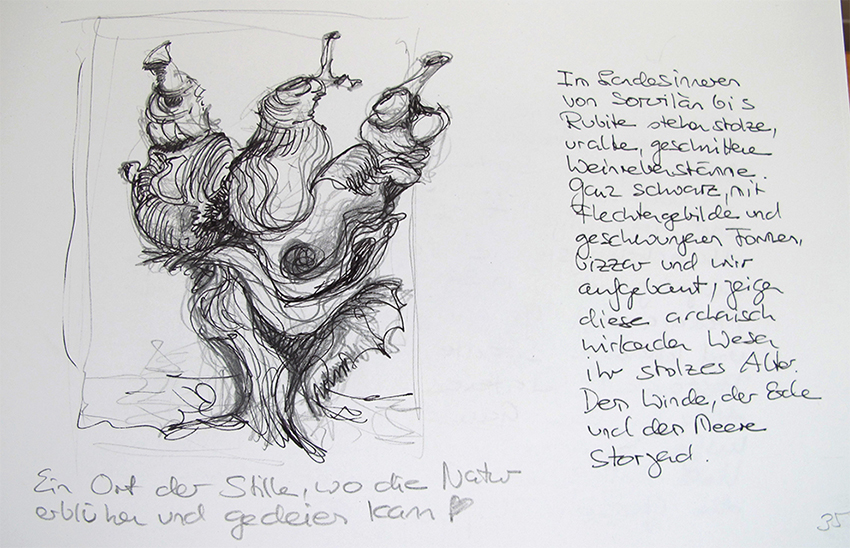 Im Landesinneren
von Sorvilán bis
Rubite stehen stolze,
uralte, geschnittene
Weinrebenstämme.
Ganz schwarz, mit
Flechtengebilde und
geschwungenen Formen,
bizzar und wirr
aufgebaut, zeigen
diese archaisch
wirkenden Wesen
ihr stolzes Alter.
Dem Winde, der Erde
und dem Meere
Ein Ort der Stille, wo die Natur
erblühen und gedeien kann
35